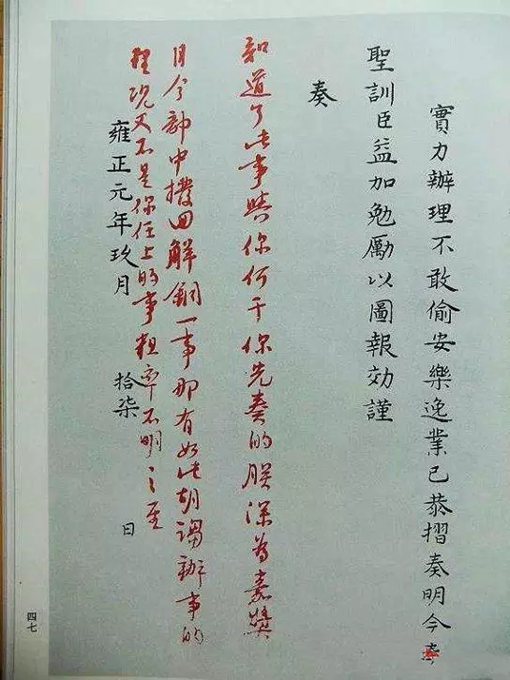 實力辦理不敢偷安樂逸業已恭摺奏明今奉
聖訓臣益加勉勵以圖報効謹
奏
知道了此事與你何干你先奏的朕深為嘉獎
目今部中撥回解銅一事那有如此胡謅辦事的
理况又不是你任上的事粗率不明之至
雍正元年玖月 拾柒 日
四七